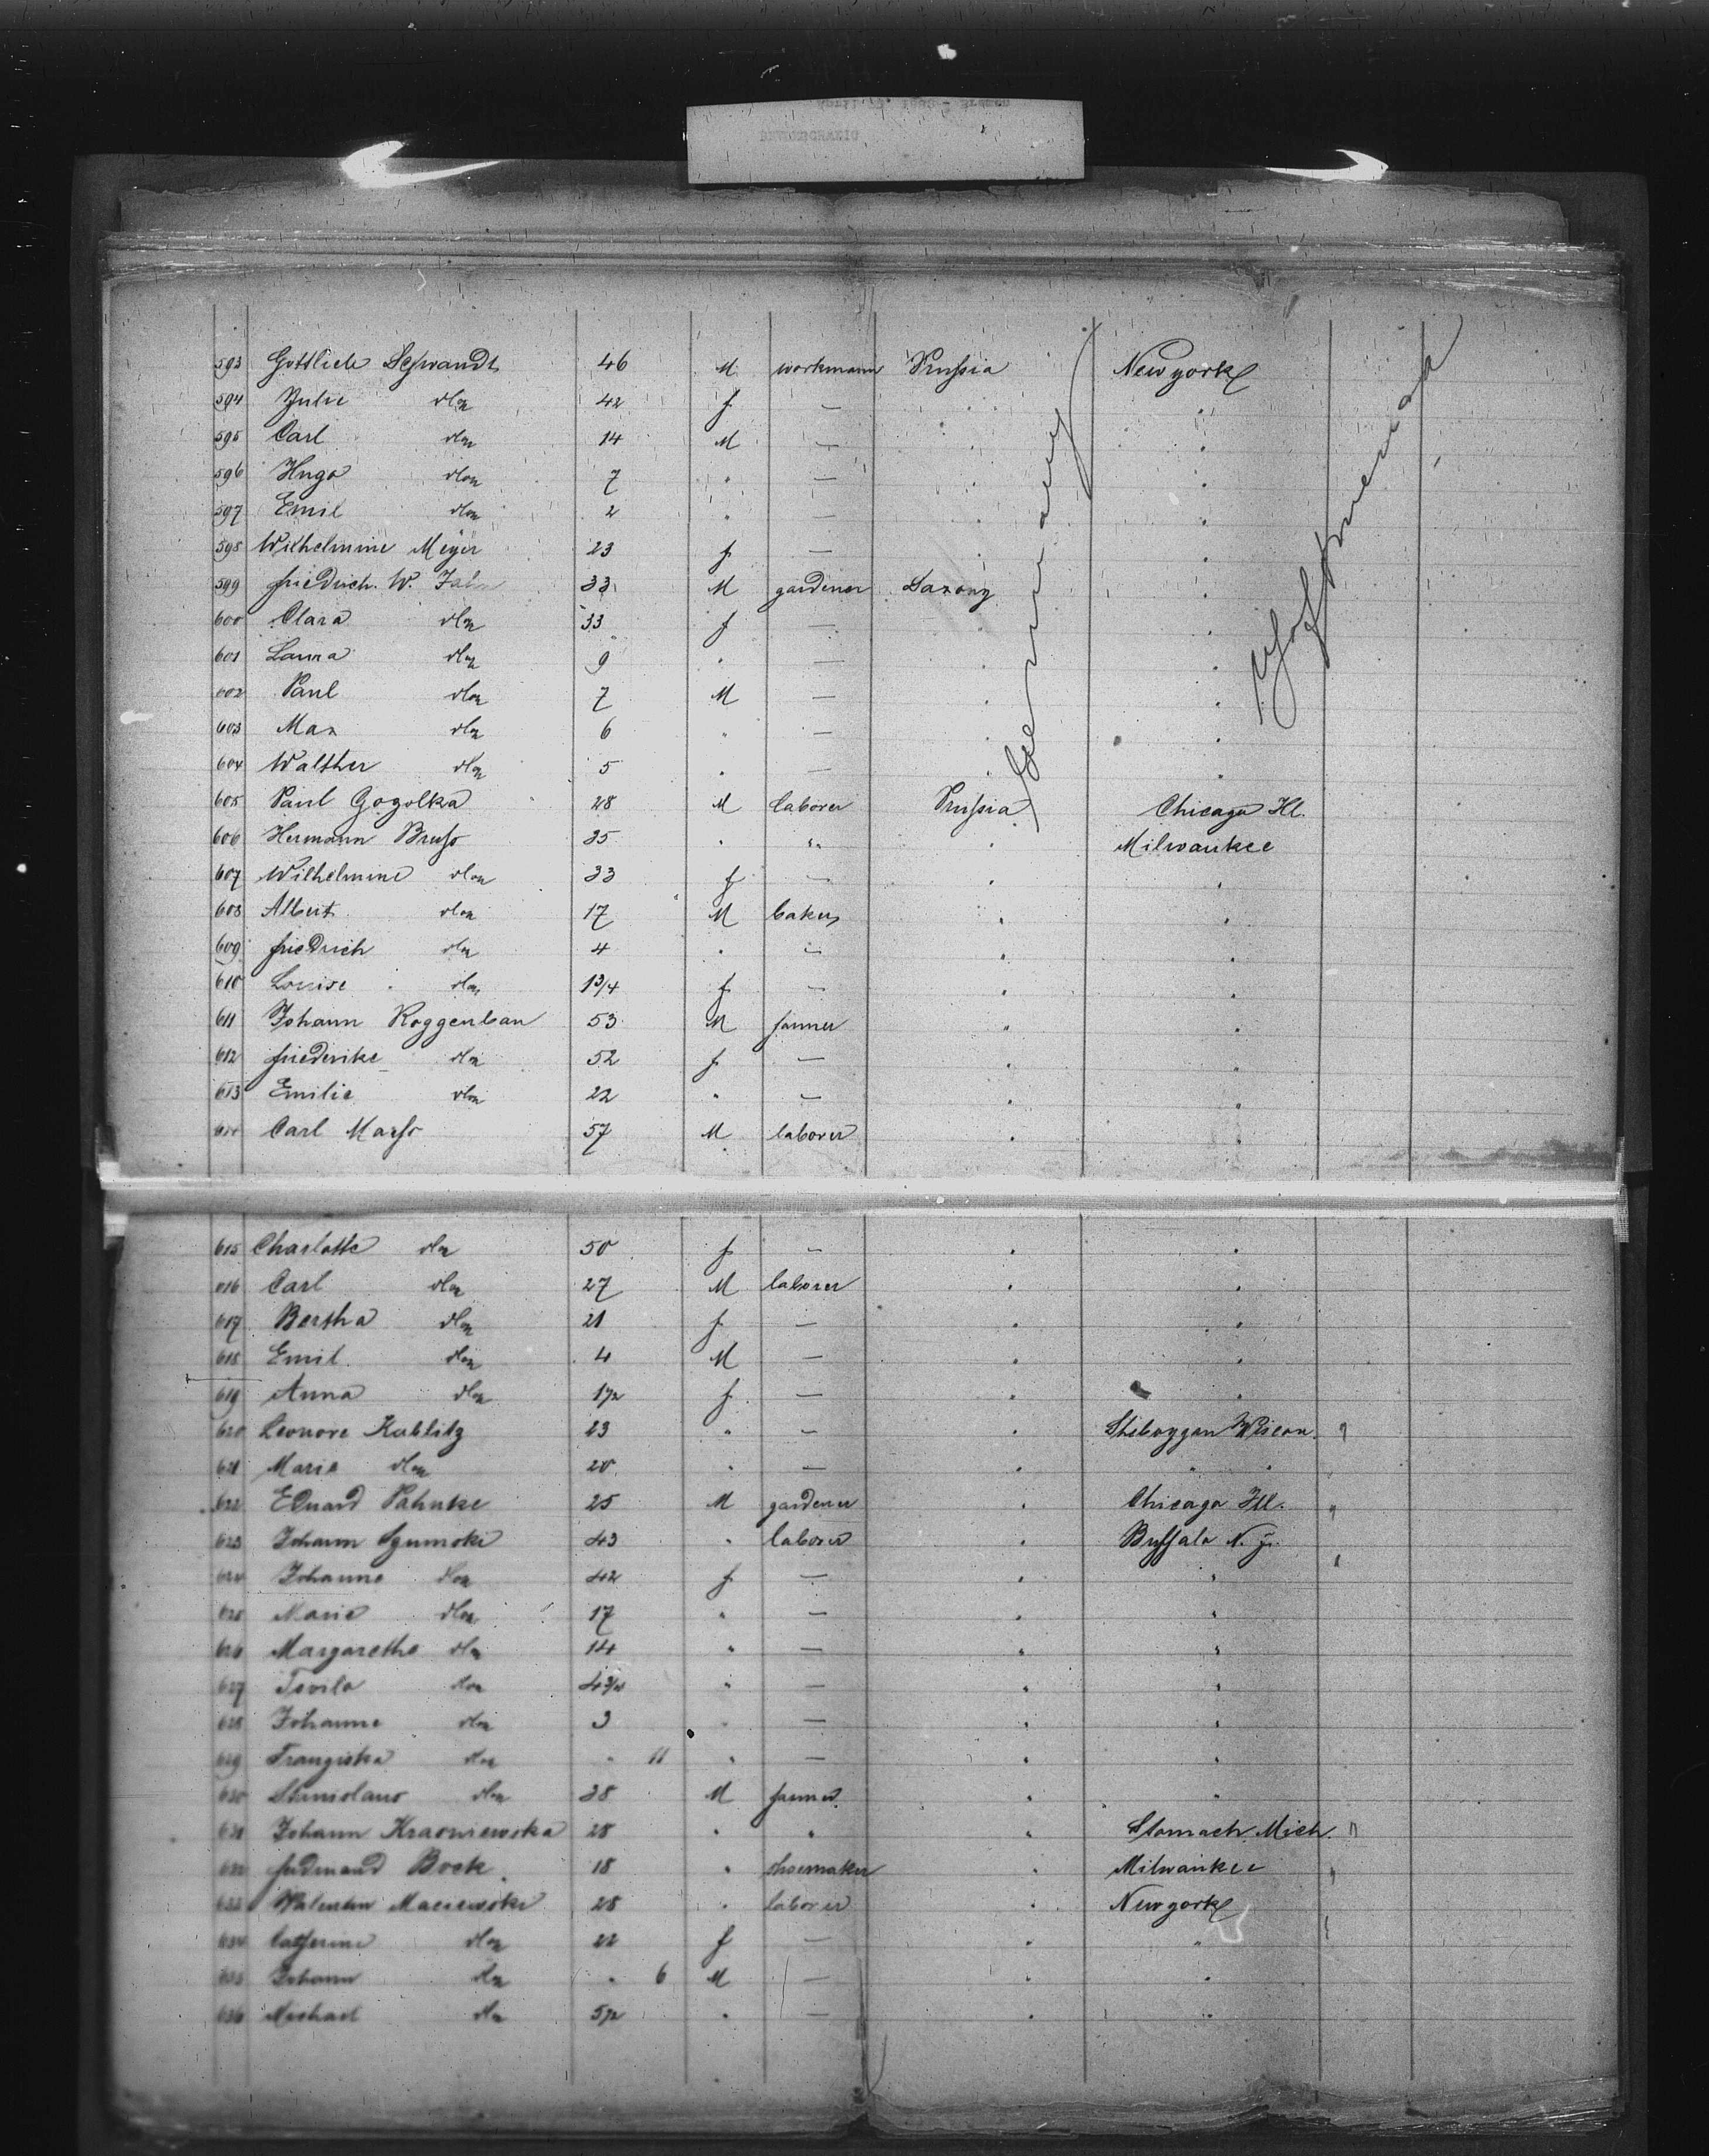 593 Gottlieb Schwandt 46 M workmann Prussia New york
594 Julie do 42 f —
595 Carl do 14 M —
596 Hugo do 7 " —
597 Emil do 2 " —
598 Wilhelmine Meyer 23 f —
599 friedrich. W. Jahn 33 M gardener Saxony "
600 Clara do 33 f — "
601 Laura do 9 " — "
602 Paul do 7 M — "
603 Max do 6 " — "
604 Walther do 5 " — "
605 Paul Gogolka 28 M laborer Prussia Chicago Ill.
606 Hermann 35 " " " Milwaukee
607 Wilhelmine do 33 f — " "
608 Albert do 17 M baker " "
609 friedrich do 4 " — " "
610 Louise do 1 3/4 f — " "
611 Johann Roggenbau 53 M farmer " "
612 friederike do 52 f — " "
613 Emilie do 22 " — " "
614 Carl 57 M laborer " "
615 Charlotte do 50 f — " "
616 Carl do 27 M laborer " "
617 Bertha do 21 f — " "
618 Emil do 4 M — " "
619 Anna do 1 1/2 f — " "
620 Leonore Kublitz 23 " — " Sheboygan Wiscon. "
621 Marie do 20 " — " " "
622 Eduard Pahnke 25 M gardener " Chicago Ill. "
623 Johann 43 " laborer " Buffalo N. y. "
624 Johanne do 42 f — " "
625 Marie do 17 " — " "
626 Margarethe do 14 " — " "
627 do " — " "
628 Johanne do 3 " — " "
629 Franziska do " 11 " — " "
630 Stanislaus do 38 M farmer " "
631 Johann Krasniewska 28 " " " Mich. "
632 ferdinand Bock 18 " shoemaker " Milwaukee "
633 Valentin Maciewski 28 " laborer " New york "
634 Catherine do 22 f — " "
635 Johann do " 6 M — " "
636 Michael do 5 1/2 " — " "
Germany